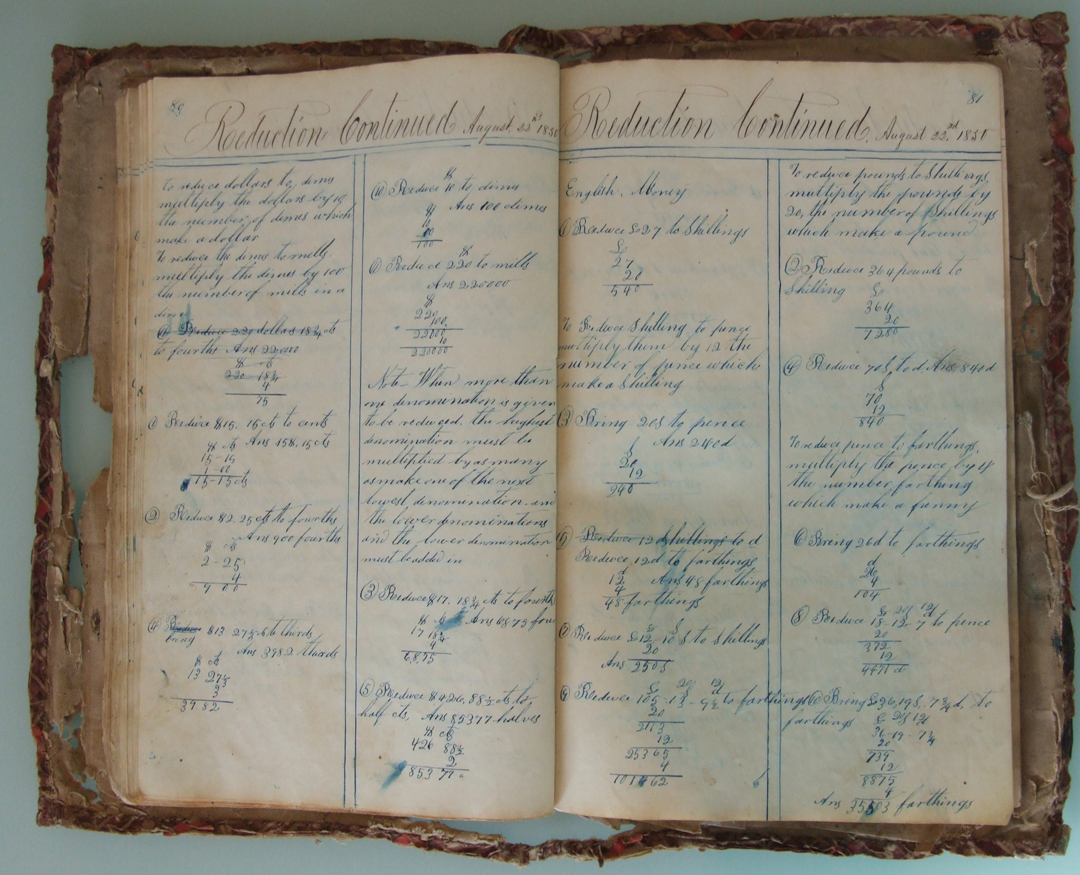 80
Reduction Continued August 22nd 185
To reduce dollars to dimes
multiply the dollars by 10
the number of dimes which
make a dollar
To reduce the dimes to mills
multiply the dimes by 100
the number of mills in a
dime
Reduce 220 dollars 18¾ cts
to fourths Ans 22000
$ cts
220 18¾
4
75
① Reduce $15. 15 cts to cents
$ cts Ans 158. 15 cts
15-15
1-00
15-15 cts
② Reduce $2. 25 cts to fourths
Ans 900 fourths
$ cts
2-25
4
900
④ Reduce $13 27⅓ cts thirds
bring
Ans 3982 thirds
$ cts
13 27⅓
3
3982
$
⑥ Reduce 10 to dimes
$ Ans 100 dimes
100
$
Reduced 220 to mills
Ans 220000
$
220
100
22000
10
220000
Note When more than
one denomination is given
to be reduced, the highest
denomination must be
multiplied by as many
as make one of the next
lowest, denomination, and
the lower denominations
and the lower denomination
must be added in
③ Reduce $17. 18¾ cts to fourths
$ cts Ans 6875 four
17 18¾
4
6875
⑤ Reduce $426, 88½ cts to
half cts, Ans 85377 halves
$ cts
426 88½
2
85377
81
Reduction Continued, August 22nd 185
English. Money
① Reduce £27 to Shillings
£
27
20
540
To Reduce Shilling to pence
multiply them by 12 the
number of pence which
make a Shilling
③ Bring 20S to pence
Ans 240d
S
20
12
240
⑤ Reduce 12 shillings to d
Reduce 12d to farthings
d
12 Ans 48 farthings
4
48 farthings
£ S
⑦ Reduce 12-10 S to Shillings
20
Ans 250S
£ 20S 12d
⑨ Reduce 105-13-9½ to farthings
20
2113
12
25365
4
101462
To reduce pounds to Shillings,
multiply the pounds by
20, the number of Shillings
which make a pound
② Reduce 364 pounds to
Shilling £
364
20
7280
④ Reduce 70S, to d Ans 840d
S
70
12
840
To reduce pence to farthings,
multiply the pence by 4
the number farthing
which make a penny
⑥ Bring 26d to farthings
d
26
4
104
£ 20S 12d
⑧ Reduce 18-12-7 to pence
20
372
12
4471 d
⑩ Bring £36, 19S, 7¾d, to
farthings £ 20S 12d
36-19-7¾
20
739
12
8875
4
Ans 35503 farthings